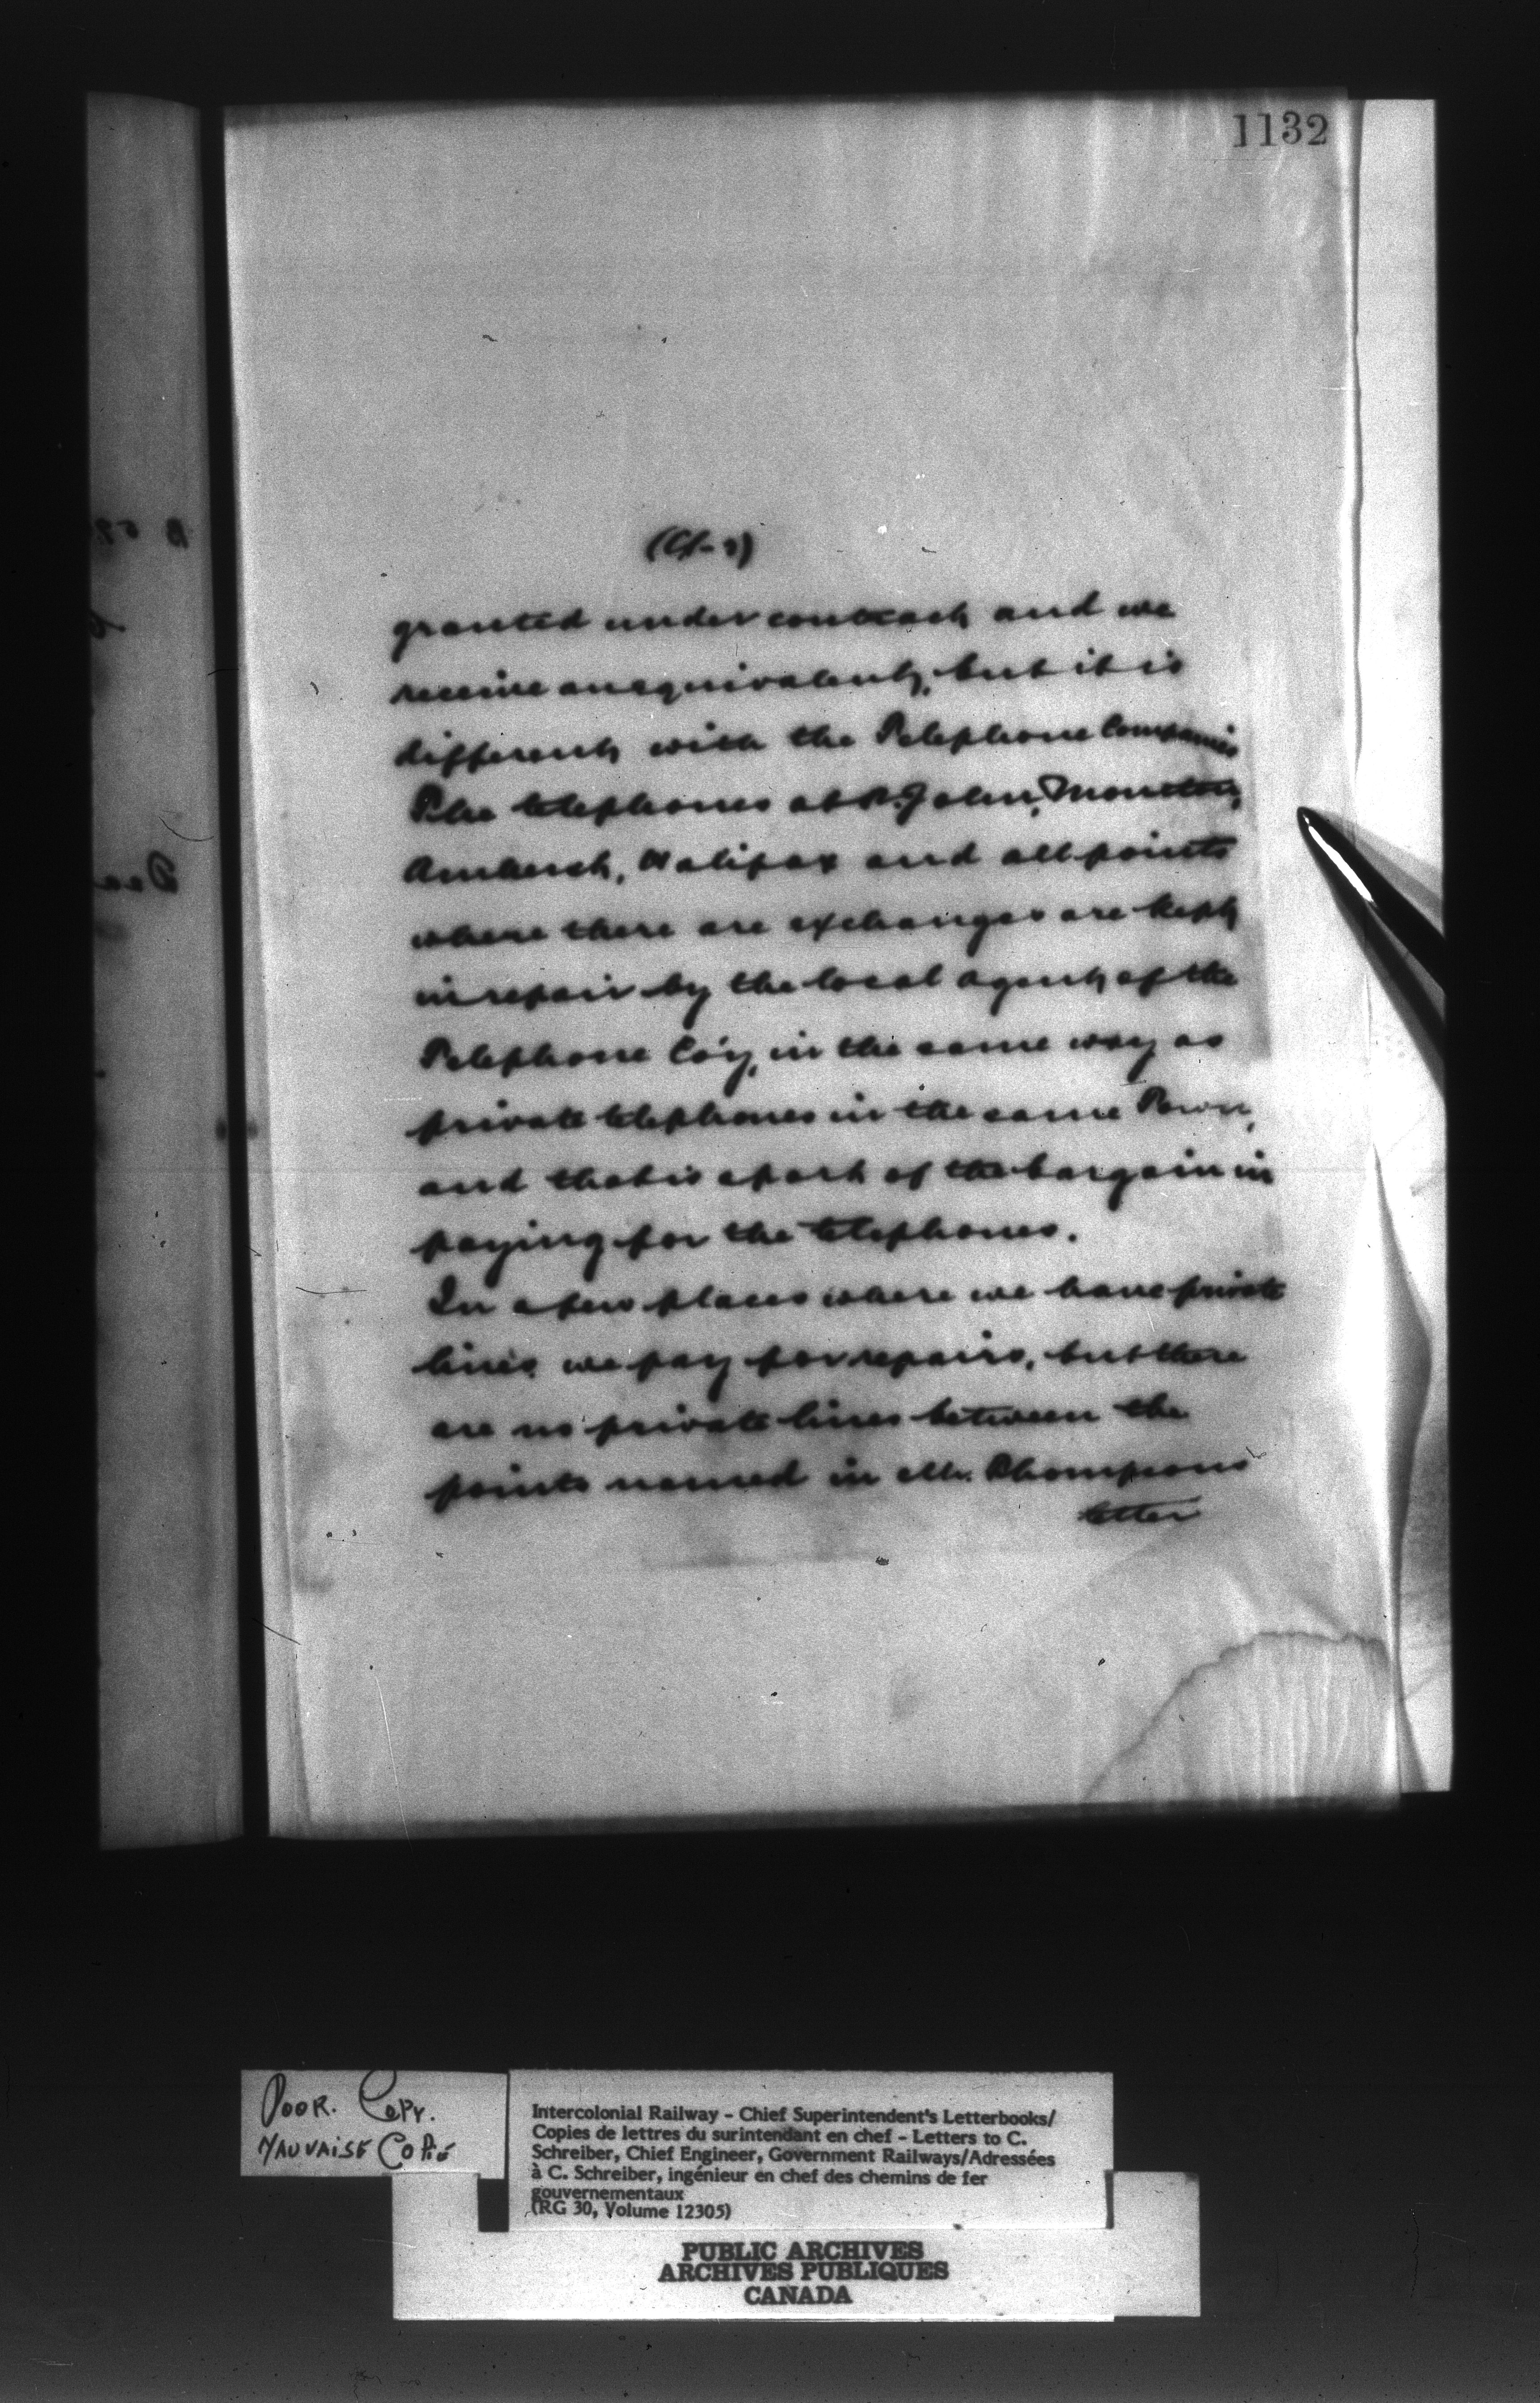 1132
granted under contract and we
receive an equivalent, but it is
different with the Telephone Companies
The telephones at St. John, Moncton,
Amherst, Halifax and all points
where there are exchanges are kept
in repair by the local agent of the
Telephone Co'y, in the same way as
private telephones in the same Town,
and that is a part of the bargain in
paying for the telephones.
In a few places where we have private
lines we pay for repairs, but there
are no private lines between the
points named in Mr. Thompsons
letter
POOR. COPY.
MAUVAISE COPIE
Intercolonial Railway - Chief Superintendent's Letterbooks/
Copies de lettres du surintendant en chef - Letters to C.
Schreiber, Chief Engineer, Government Railways/Adressées
à C. Schreiber, ingénieur en chef des chemins de fer
gouvernementaux
(RG 30, Volume 12305)
PUBLIC ARCHIVES
ARCHIVES PUBLIQUES
CANADA